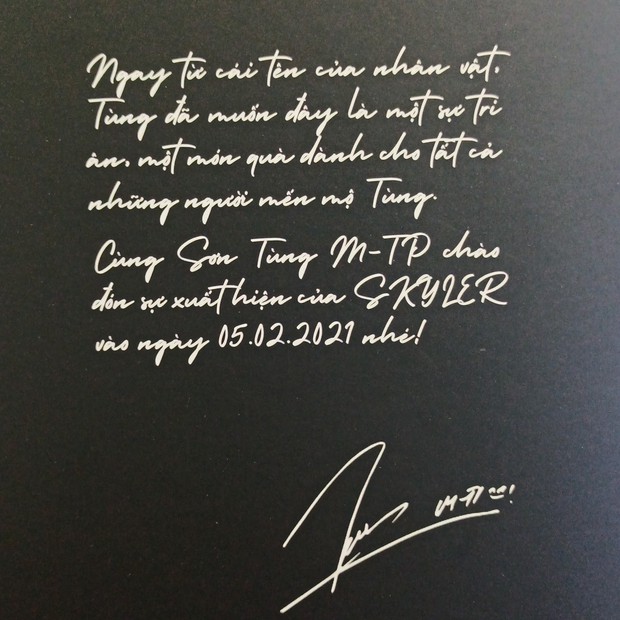 Ngay từ cái tên của nhân vật,
Tùng đã muốn đây là một sự tri
ân, một món quà dành cho tất cả
những người mến mộ Tùng.
Cùng Sơn Tùng M-TP chào
đón sự xuất hiện của SKYLER
vào ngày 05.02.2021 nhé!
M-TP